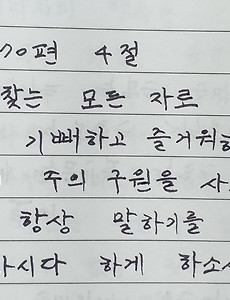 70편 4절
찾는 모든 자로
기뻐하고 즐거워하
주의 구원을 사
항상 말하기를
하시다 하게 하소서